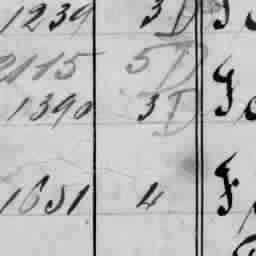 1239 3D
2115 5D
1390 3D
1651 4 F